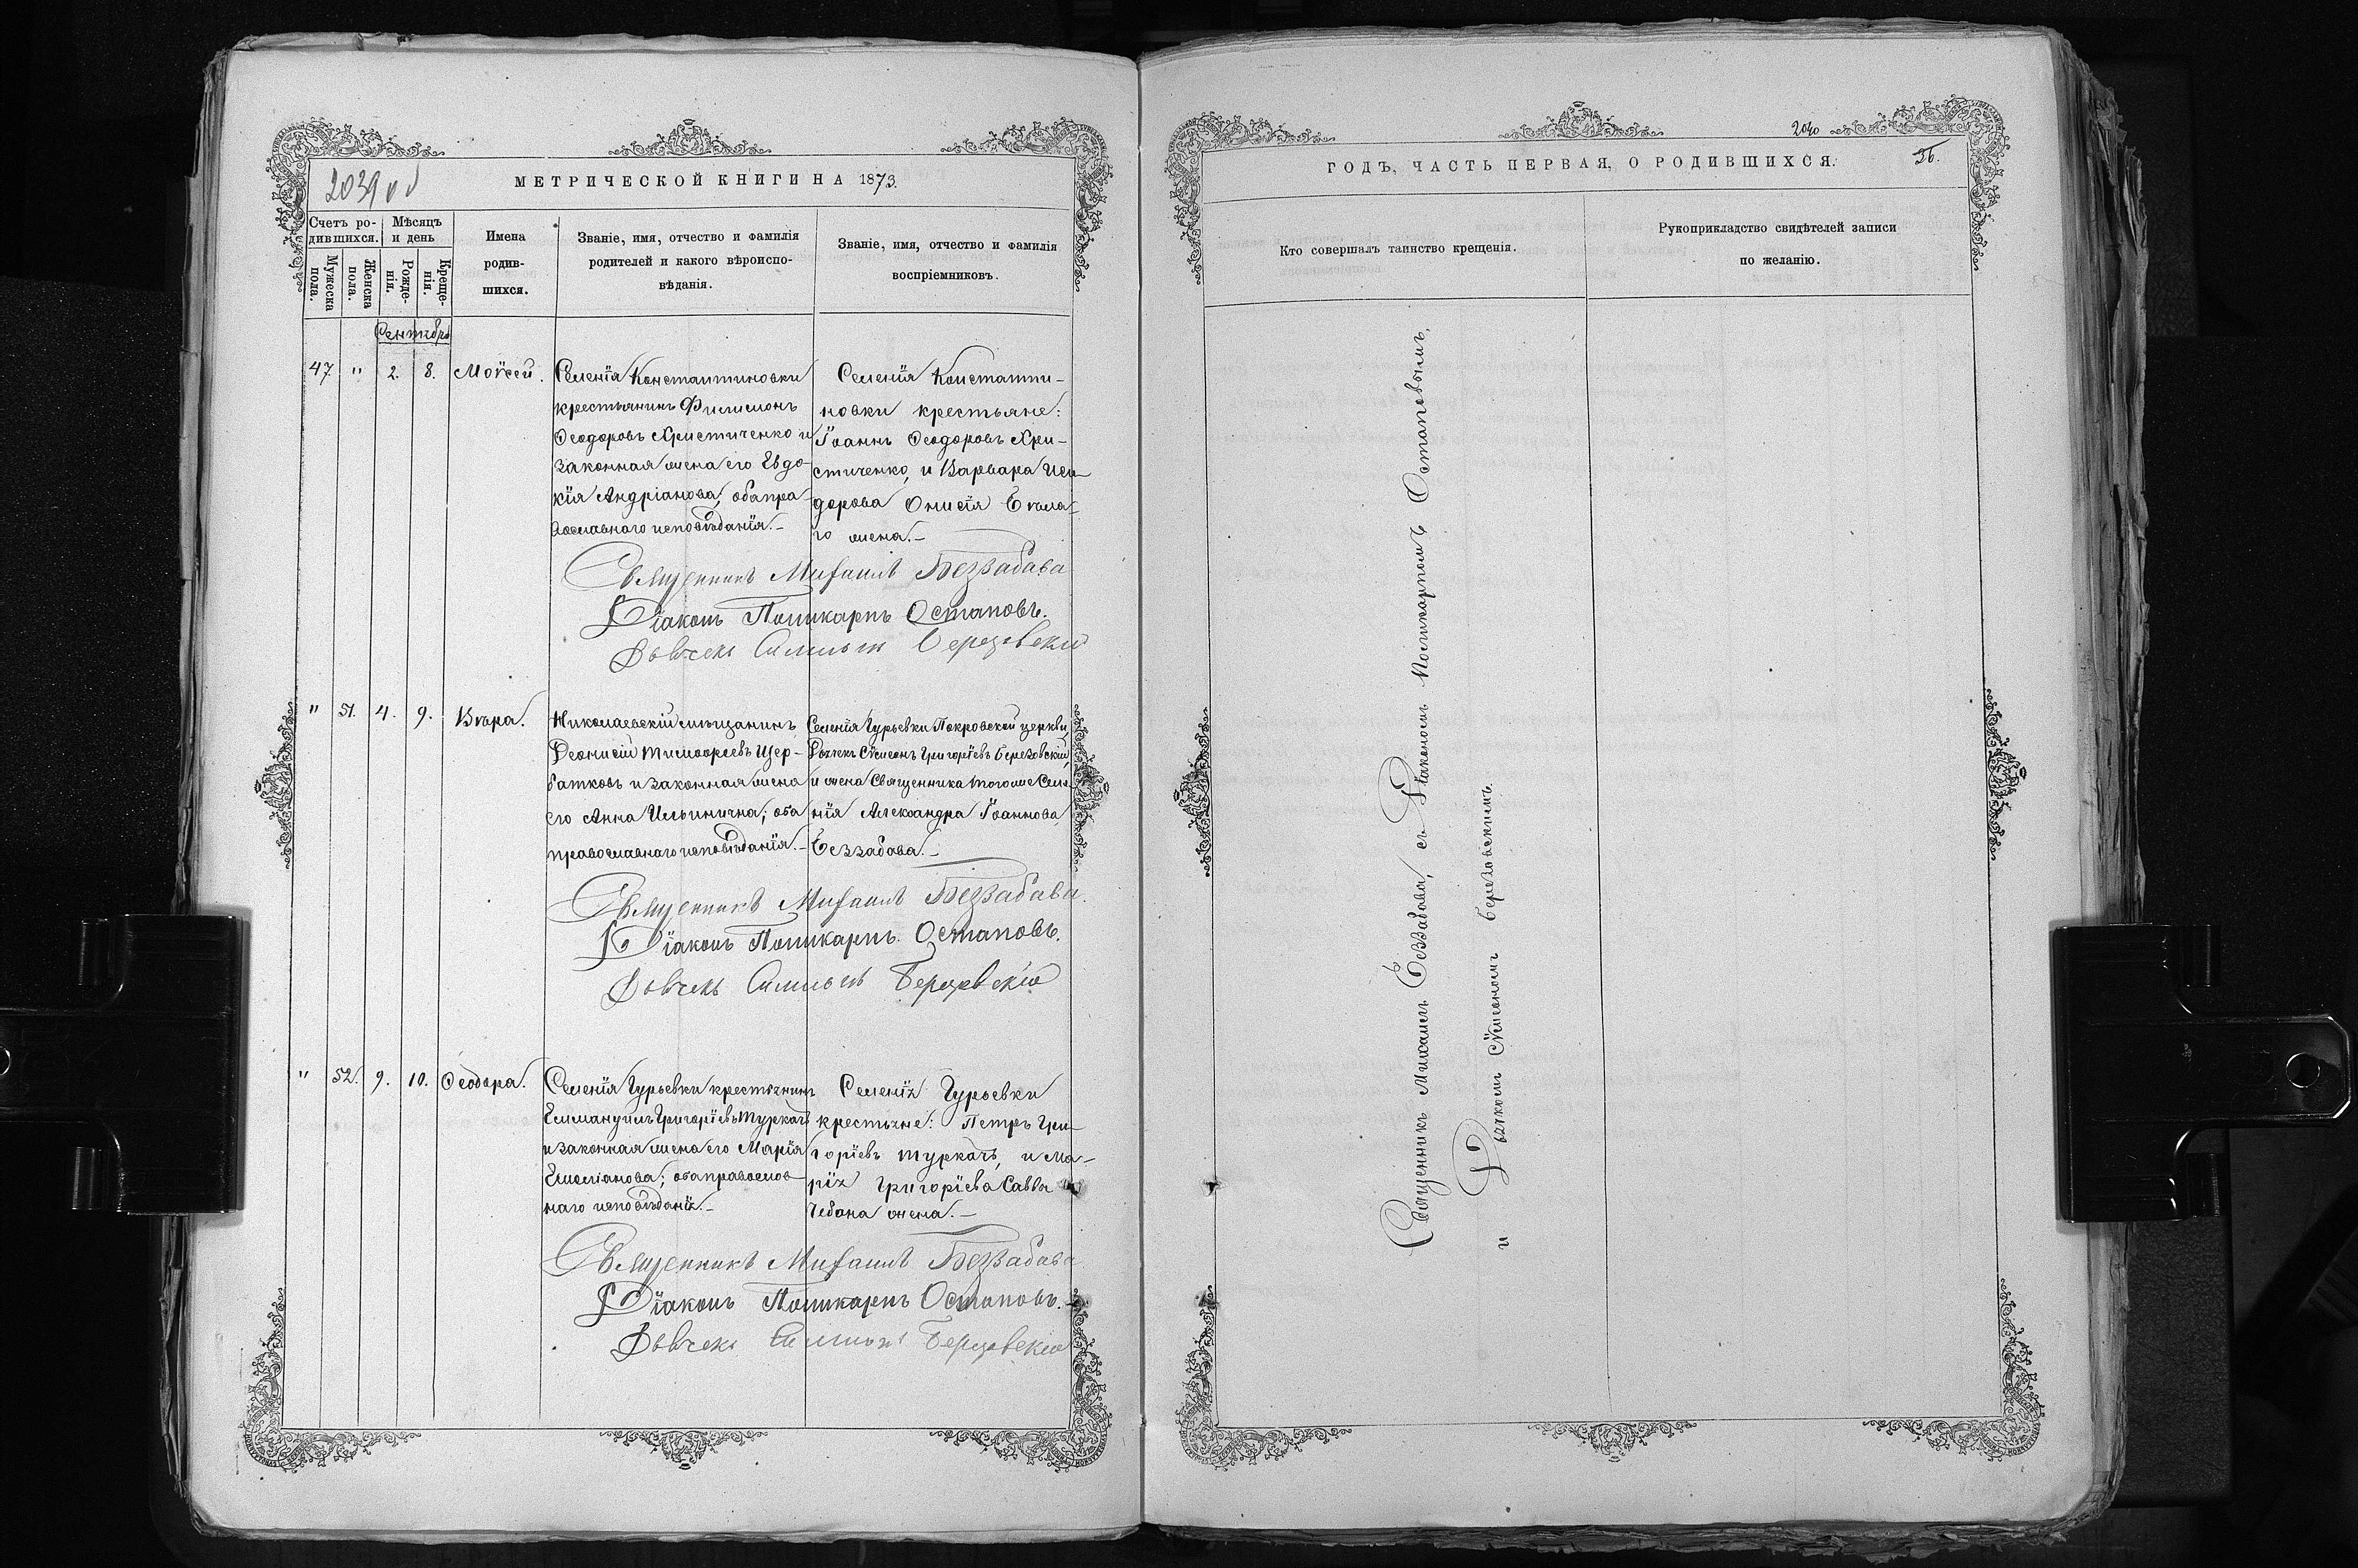 2039 об
МЕТРИЧЕСКОЙ КНИГИ НА 1873.
Счетъ родившихся.
Мѣсяцъ и день
Мужеска пола.
Женска пола.
Рожденія.
Крещенія.
Имена
родив-
шихся.
Званіе, имя, отчество и фамилія
родителей и какого вѣроиспо-
вѣданія.
Званіе, имя, отчество и фамилія
воспріемниковъ.
Сентябрь
47. " 2. 8. Моѵсей.
Селенія Константиновки
крестьянинъ Филимонъ
Ѳеодоровъ Христиченко и
законная жена его Евдо-
кія Андріанова; оба пра-
вославнаго исповѣданія.-
Селенія Константи-
новки крестьяне:
Іоаннъ Ѳеодоровъ Хри-
стиченко, и Варвара Иси-
дорова Онисія Бѣла-
го жена.-
Священникъ Михаилъ Беззабава
Діаконъ Поликарпъ Остаповъ.
Дьячекъ Симеонъ Березовскій
" 51. 4. 9. Вѣра.
Николаевскій мѣщанинъ
Деонисій Тимофеевъ Щер-
батковъ и законная жена
его Анна Ильинична; оба
православнаго исповѣданія.-
Селенія Гурьевки Покровской церкви,
Дьячекъ Сѵмеонъ Григоріевъ Березовскій,
и жена Священника того же Селе-
нія Александра Іоаннова
Беззабава.-
Священникъ Михаилъ Беззабава.
Діаконъ Поликарпъ Остаповъ.
Дьячекъ Симеонъ Березовскій
" 52. 9. 10. Ѳеодора.
Селенія Гурьевки крестьянинъ
Еммануилъ Григоріевъ Туркачъ
и законная жена его Марія
Емеліанова; оба православ-
наго исповѣданія.-
Селенія Гурьевки
крестьяне: Петръ Гри-
горіевъ Туркачъ, и Ма-
рія Григоріева Саввы
Чебана жена.-
Священникъ Михаилъ Беззабава
Діаконъ Поликарпъ Остаповъ.-
Дьячекъ Симеонъ Березовскій
2040
36.
ГОДЪ, ЧАСТЬ ПЕРВАЯ, О РОДИВШИХСЯ.
Кто совершалъ таинство крещенія.
Рукоприкладство свидѣтелей записи
по желанію.
Священникъ Михаилъ Беззабава, съ Діакономъ Поликарпомъ Остаповымъ,
и Дьячкомъ Сѵмеономъ Березовскимъ.